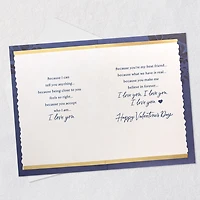 Because I can
tell you anything...
because being close to you
feels so right...
because you accept
who I am...
I love you.
Because you're my best friend...
because what we have is real...
because you make me
believe in forever...
I love you, I love you,
I love you
Happy Valentine's Day